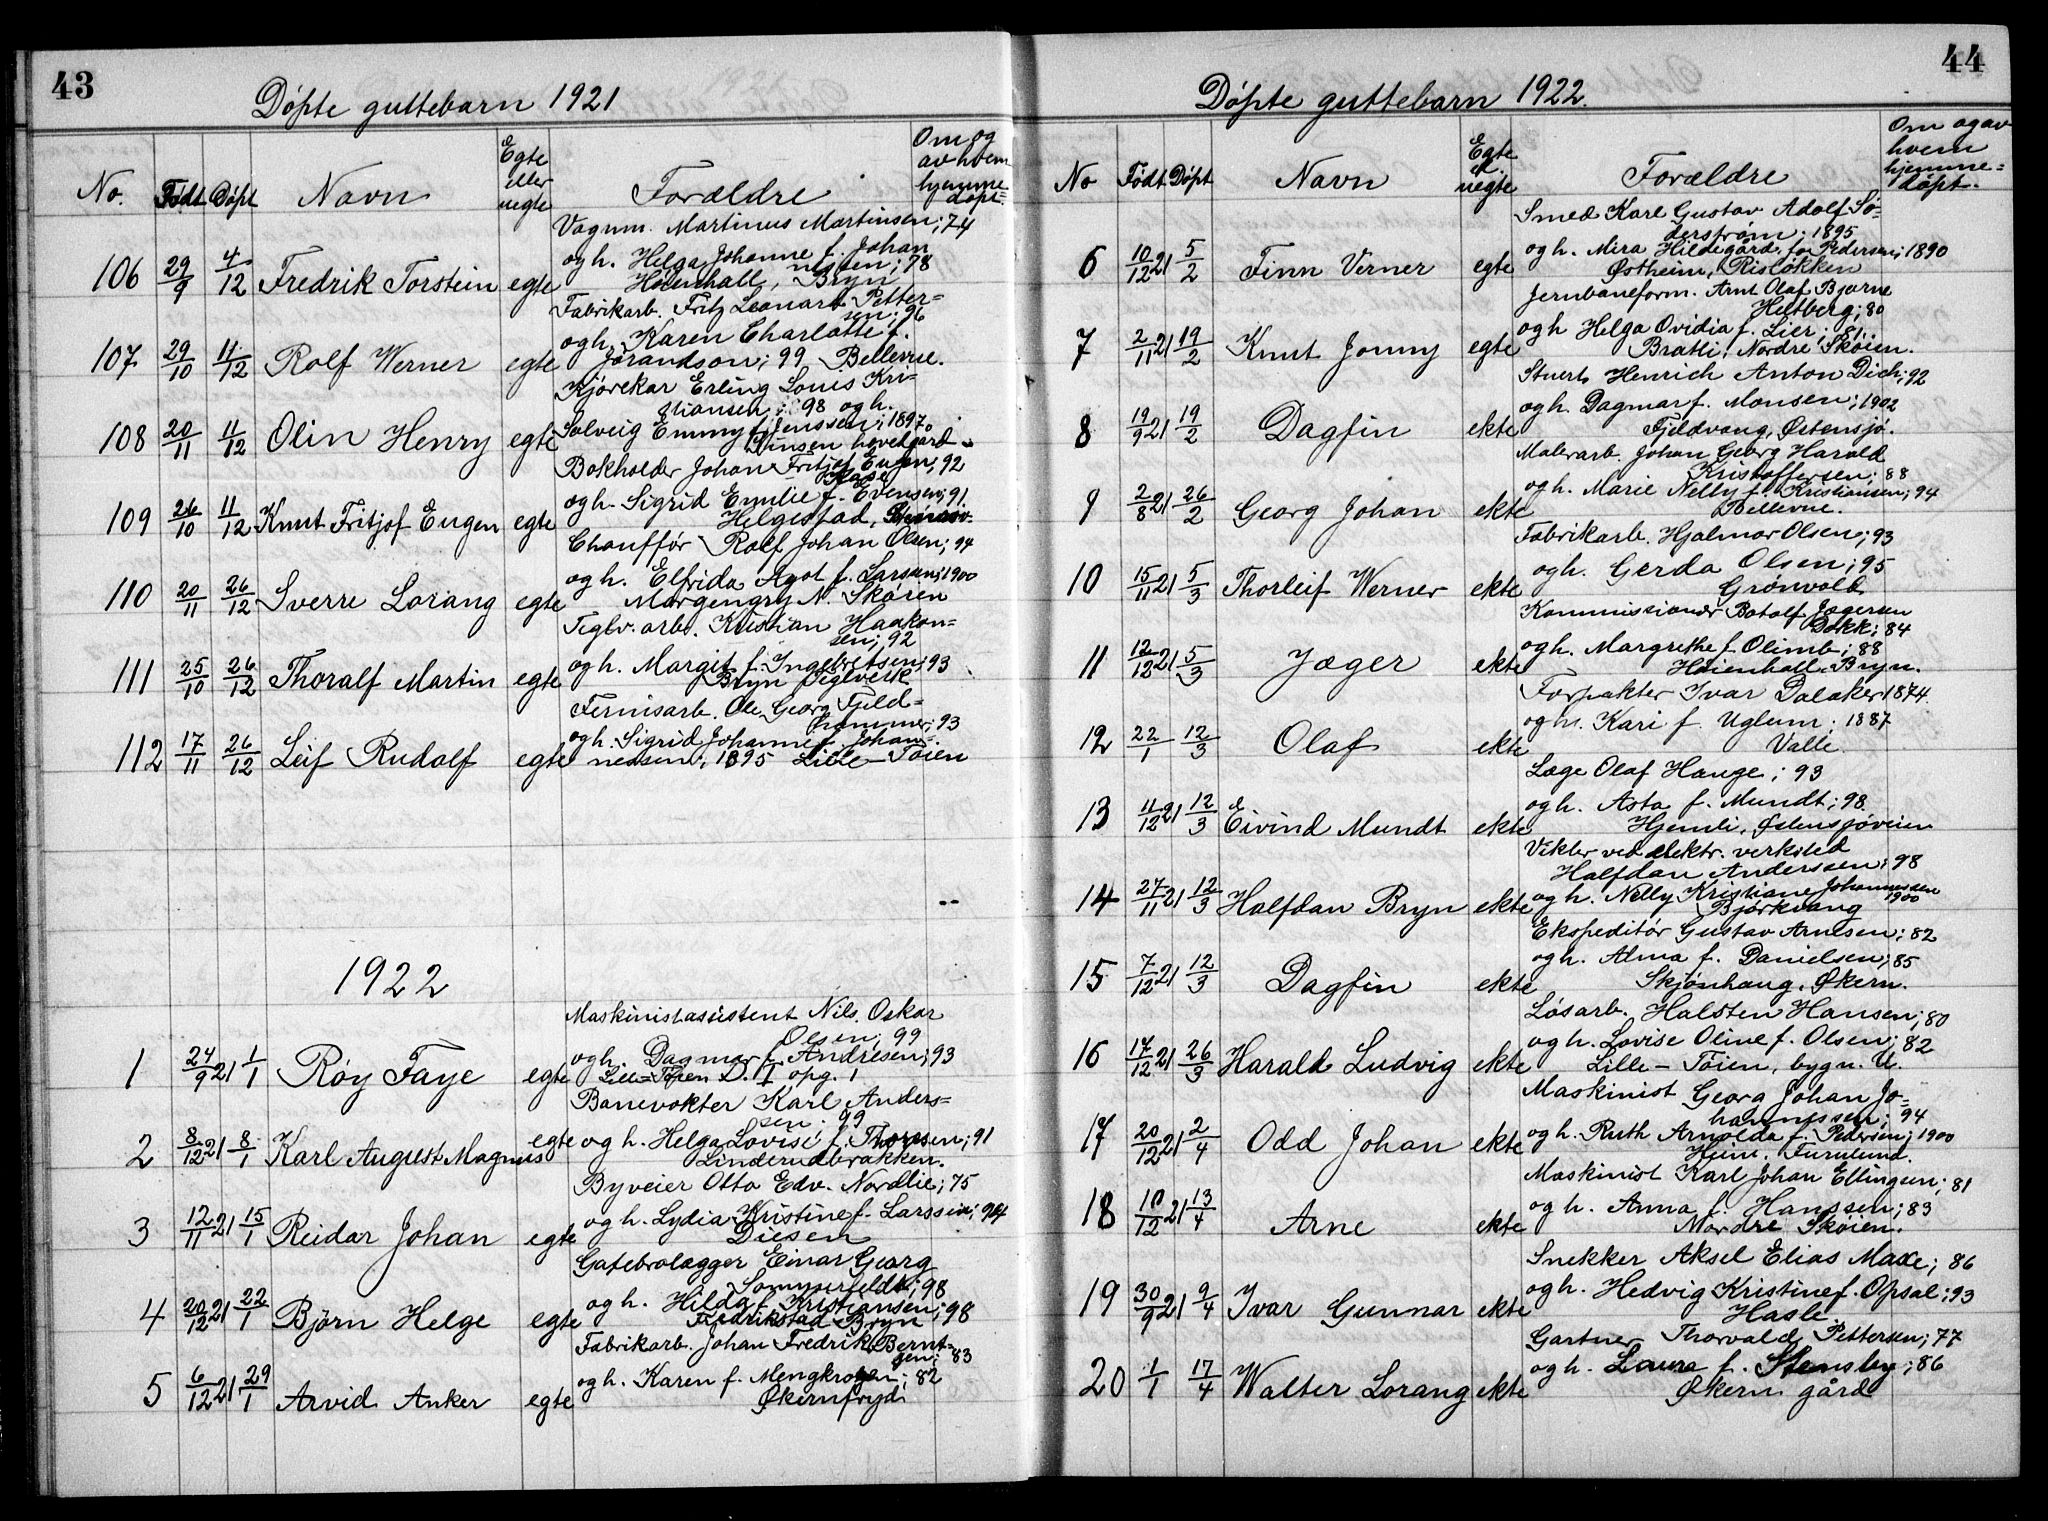 43
Døpte guttebarn 1921
No. Født Døpt Navn Egte eller uegte Forældre Om og av hvem hjemmedøpt.
Vognm. Martinus Martinsen; 74
og h. Helga Johanne f. Johan
nesen; 78
106 29/9 4/12 Fredrik Torstein egte Høienhall, Bryn
Fabrikarb. Fritz Leonard Petter=
sen; 96
og h. Karen Charlotte f.
107 29/10 11/12 Rolf Werner egte Jørandson; 99 Bellevue.
Kjørekar Erling Louis Kri-
stiansen; 98 og h.
Solveig Emmy f. Jenssen; 1897.
108 20/11 11/12 Olin Henry egte hovedgård
Bokholder Johan Fritjof Eugen, 92
og h. Sigrid Emilie f. Evensen; 91
109 26/10 11/12 Knut Fritjof Eugen egte Helgestad,
Chauffør Rolf Johan Olsen; 94
og h. Elfrida Agot f. Larsen; 1900
110 20/11 26/12 Sverre Lorang egte Margengry N. Skøien
Teglv. arb. Kristian Haakon=
sen; 92
og h. Margit f. Ingebretsen; 93
111 25/10 26/12 Thoralf Martin egte Bryn Teglverk
Fernisarb. Ole Georg Fjeld=
hammer; 93
og h. Sigrid Johanne f. Johan-
112 17/11 26/12 Leif Rudolf egte nessen, 1895 Lille-Tøien
1922
Maskinistassistent Nils Oskar
Olsen; 99
og h. Dagmar f. Andresen; 93
1 24/9 21 1/1 Røy Faye egte Lille-Tøien D. I opg. 1
Banevokter Karl Anders=
sen; 99
2 8/12 21 8/1 Karl August Magnus egte og h. Helga Lovise f. Thoresen; 91
Linderudbrakken.
Byveier Otto Edv. Nordlie; 75
og h. Lydia Kristine f. Larssen; 94
3 12/11 21 15/1 Reidar Johan egte Diesen
Gatebrolægger Einar Georg
Sommerfeldt; 98
og h. Hilda f. Kristiansen; 98
4 20/12 21 22/1 Bjørn Helge egte Fredrikstad Bryn
Fabrikarb. Johan Fredrik Bernt-
sen; 83
og h. Karen f. Mengkrogen; 82
5 6/12 21 29/1 Arvid Anker egte Økernfryd
44
Døpte guttebarn 1922.
No Født Døpt Navn Egte el. uegte Forældre Om og av hvem hjemme=døpt.
Smed Karl Gustav Adolf Sø-
derstrøm; 1895
og h. Mira Hildegård, f. Pedersen; 1890
6 10/12 21 5/2 Finn Verner egte Østheim, Risløkken
Jernbaneform. Arnt Olaf Bjarne
Heltberg; 80
og h. Helga Ovidia f. Lier; 81.
7 2/11 21 19/2 Knut Jonny egte Bratli, Nordre Skøien.
Stuert Henrich Anton Dich; 92
og h. Dagmar f. Monsen; 1902
8 19/9 21 19/2 Dagfin ekte Fjeldvang, Østensjø.
Malerarb. Johan Georg Harald
Kristoffersen; 88
og h. Marie Nelly f. Kristiansen; 94
9 2/8 21 26/2 Georg Johan ekte Bellevue.
Fabrikarb. Hjalmar Olsen; 93
og h. Gerda Olsen; 95
10 15/11 21 5/3 Thorleif Werner ekte Grønvold
Kommissionær Botolf Jægersen
Dokk; 84
og h. Margrethe f. Olimb; 88
11 12/12 21 5/3 Jæger ekte Høienhall Bryn.
Forpakter Ivar Dalaker 1874.
og h. Kari f. Uglum. 1887
12 22/1 12/3 Olaf ekte Valle.
Læge Olaf Hauge; 93
og h. Asta f. Mundt; 98.
13 11/12 21 12/3 Eivind Mundt ekte Hjemli, Østensjøveien
Vikler ved elektr. verksted
Halfdan Anderssen; 98
og h. Nelly Kristiane Johannessen
14 27/11 21 12/3 Halfdan Bryn ekte Bjørkvang 1900
Ekspeditør Gustav Arnesen; 82
og h. Alma f. Danielsen; 85
15 7/12 21 12/3 Dagfin ekte Skjønhaug, Økern.
Løsarb. Halsten Hansen; 80
og h. Lovise Oline f. Olsen; 82
16 17/12 21 26/3 Harald Ludvig ekte Lille-Tøien, bygn. U.
Maskinist Georg Johan Jo-
hannessen; 94
17 20/12 21 2/4 Odd Johan ekte og h. Ruth Arnolda f. Pedersen; 1900
Heim, Furulund.
Maskinist Karl Johan Ellingsen; 81
og h. Anna f. Hanssen; 83
18 10/12 21 13/4 Arne ekte Nordre Skøien.
Snekker Aksel Elias Maxe; 86
og h. Hedvig Kristine f. Opsal; 93
19 30/9 21 9/4 Ivar Gunnar ekte Hasle.
Gartner Thorvald Pettersen; 77
og h. Laura f. Stensby; 86
20 1/1 17/4 Walter Lorang ekte Økern gård